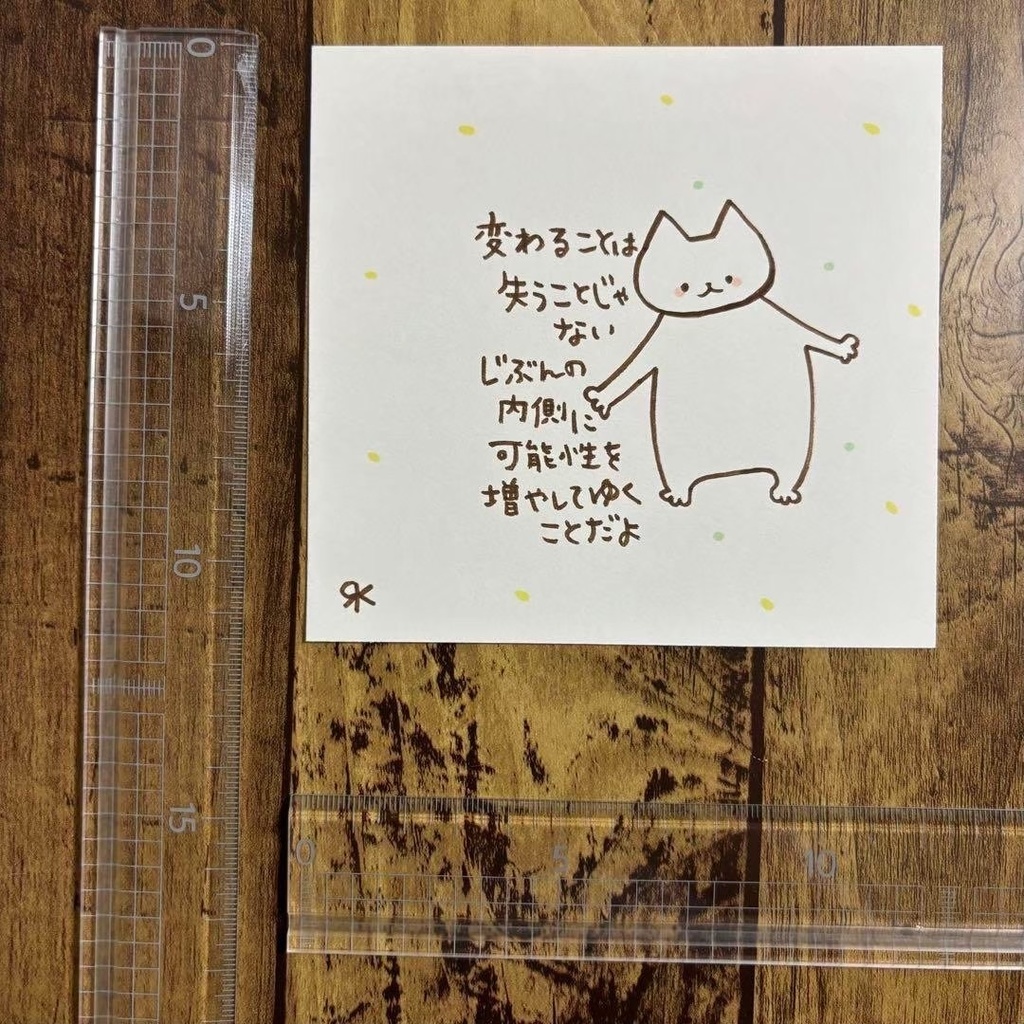 変わることは
失うことじゃ
ない
じぶんの
内側に
可能性を
増やしてゆく
ことだよ
RK
0
5
10
15
0
5
10